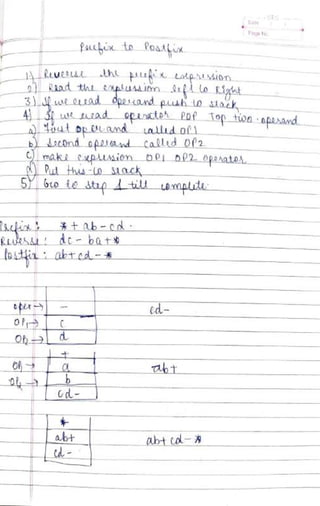 Date
Page No.
Prefix to Postfix
1) Reverse the prefix expression
2) Read the expression left to Right
3) If we read operand push to stack
4) If we read operator POP Top two operand
a) First operand called OP1
b) Second operand called OP2
c) make expression OP1 OP2 operator
d) Put this to stack
5) Go to step 1 till complete.
Prefix: * + ab - cd .
Reverse: dc - ba + *
Postfix: ab + cd - *
oper → -
OP1 → c
OP2 → d
cd -
+
OP1 → a
OP2 → b
cd -
ab +
*
ab+
cd -
ab + cd - *